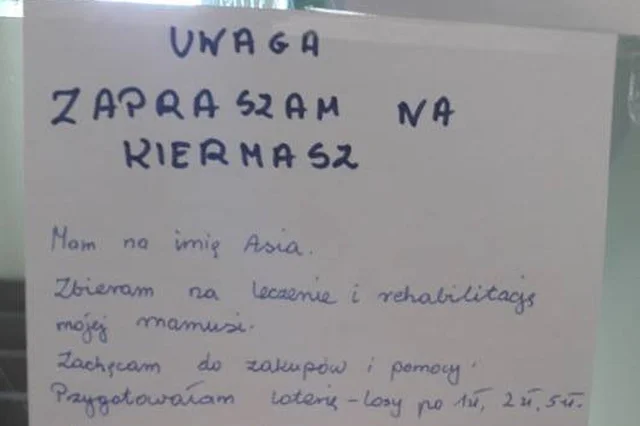 UWAGA
ZAPRASZAM NA
KIERMASZ
Mam na imię Asia.
Zbieram na leczenie i rehabilitację
mojej mamusi.
Zachęcam do zakupów i pomocy.
Przygotowałam loterię - losy po 1zł, 2zł, 5zł.